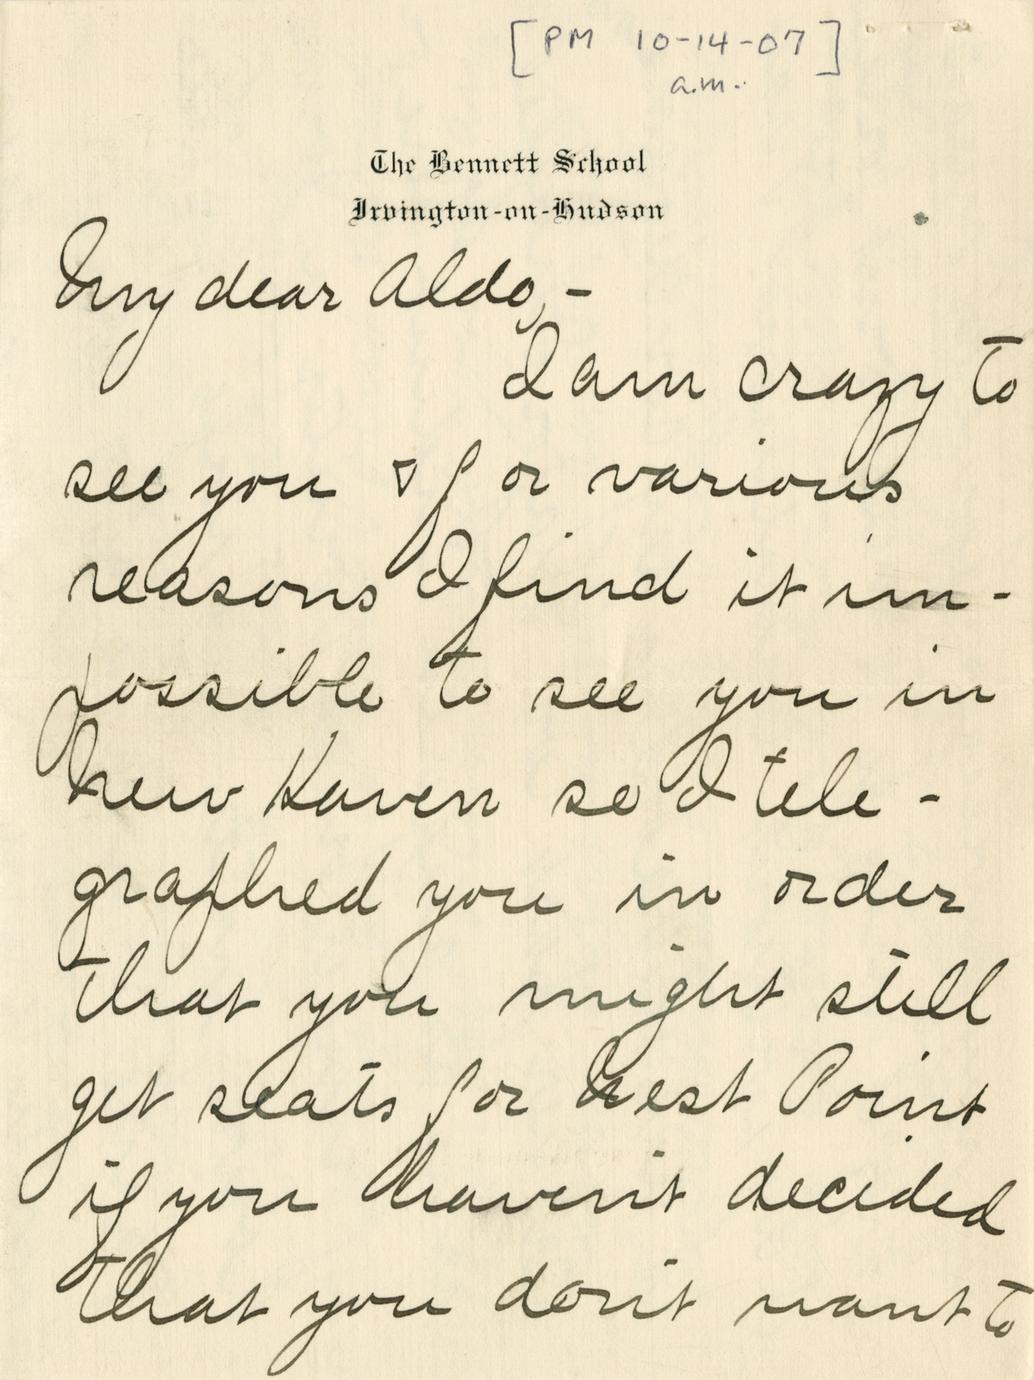 [PM 10-14-07]
a.m.
The Bennett School
Irvington-on-Hudson
My dear Aldo, -
I am crazy to
see you & for various
reasons I find it im-
possible to see you in
New Haven so I tele-
graphed you in order
that you might still
get seats for West Point
if you haven't decided
that you don't want to